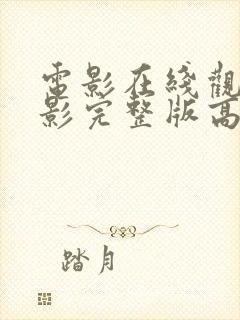 電影在綫觀
影完整版高
踏月